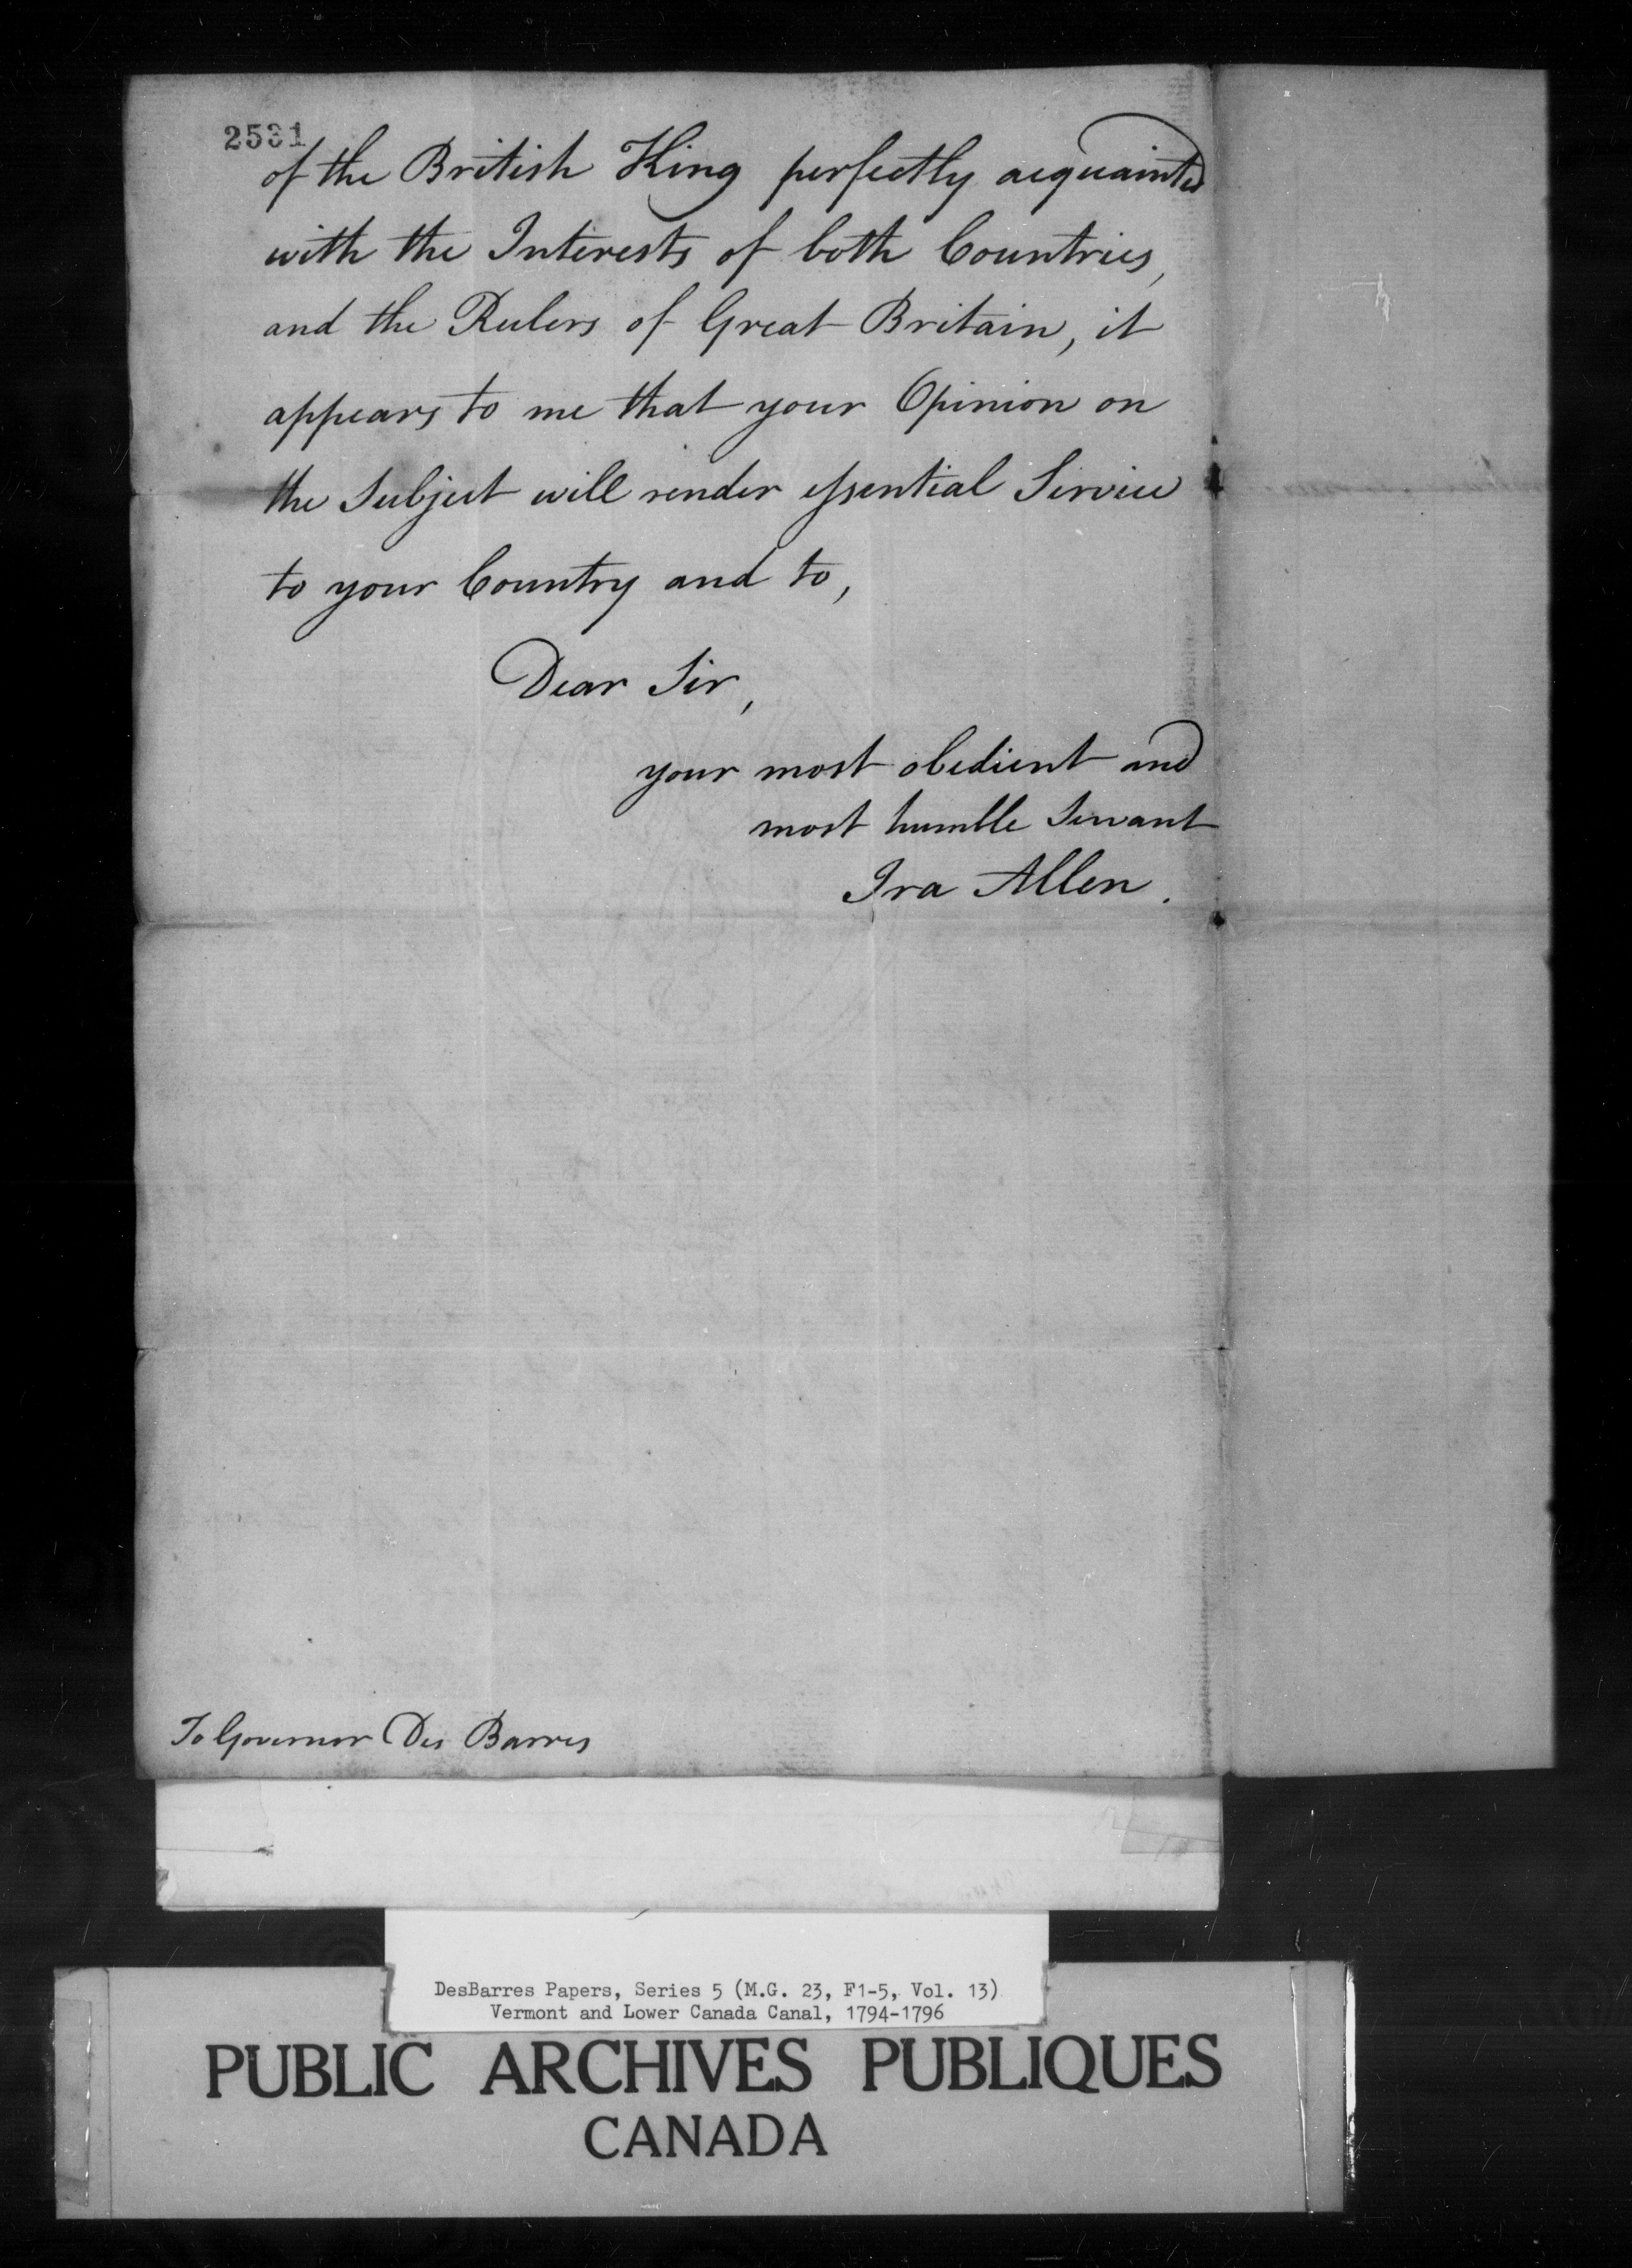 2531
of the British King perfectly acquainted
with the Interests of both Countries,
and the Rulers of Great Britain, it
appears to me that your Opinion on
the Subject will render essential Service
to your Country and to,
Dear Sir,
your most obedient and
most humble Servant
Ira Allen.
To Governor Des Barres
DesBarres Papers, Series 5 (M.G. 23, F1-5, Vol. 13)
Vermont and Lower Canada Canal, 1794-1796
PUBLIC ARCHIVES PUBLIQUES
CANADA